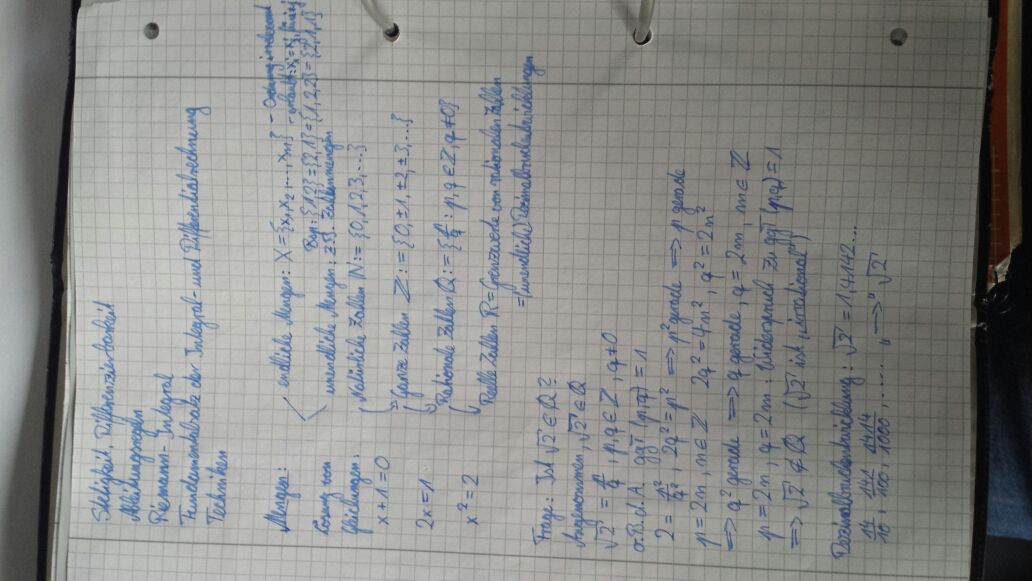 Stetigkeit, Differenzierbarkeit
Ableitungsregeln
Riemann-Integral
Fundamentalsatz der Integral- und Differentialrechnung
Techniken
Mengen: endliche Mengen: X = {x₁, x₂, ..., xₙ} - Ordnung irrelevant
Bsp: {1,2} = {2,1} = {1,2,2} = {2,1,1}
unendliche Mengen: z.B. Zahlenmengen
Lösung von Gleichungen:
Natürliche Zahlen ℕ := {0,1,2,3,...}
x+1=0
Ganze Zahlen ℤ := {0, ±1, ±2, ±3, ...}
2x=1
Rationale Zahlen ℚ := {p/q : p,q ∈ ℤ, q ≠ 0}
x²=2
Reelle Zahlen ℝ = Grenzwerte von rationalen Zahlen
= (unendliche) Dezimalbruchentwicklungen
Frage: Ist √2 ∈ ℚ?
Angenommen, √2 ∈ ℚ
√2 = p/q, p,q ∈ ℤ, q ≠ 0
o.B.d.A. ggT (p,q) = 1
2 = p²/q², 2q² = p² ⟹ p² gerade ⟹ p gerade
p = 2n, n ∈ ℤ 2q² = 4n², q² = 2n²
⟹ q² gerade ⟹ q gerade, q = 2m, m ∈ ℤ
p = 2n, q = 2m: Widerspruch zu ggT (p,q) = 1
⟹ √2 ∉ ℚ (√2 ist „irrational")
Dezimalbruchentwicklung: √2 = 1,4142...
14/10, 141/100, 1414/1000, ...... „⟶" √2